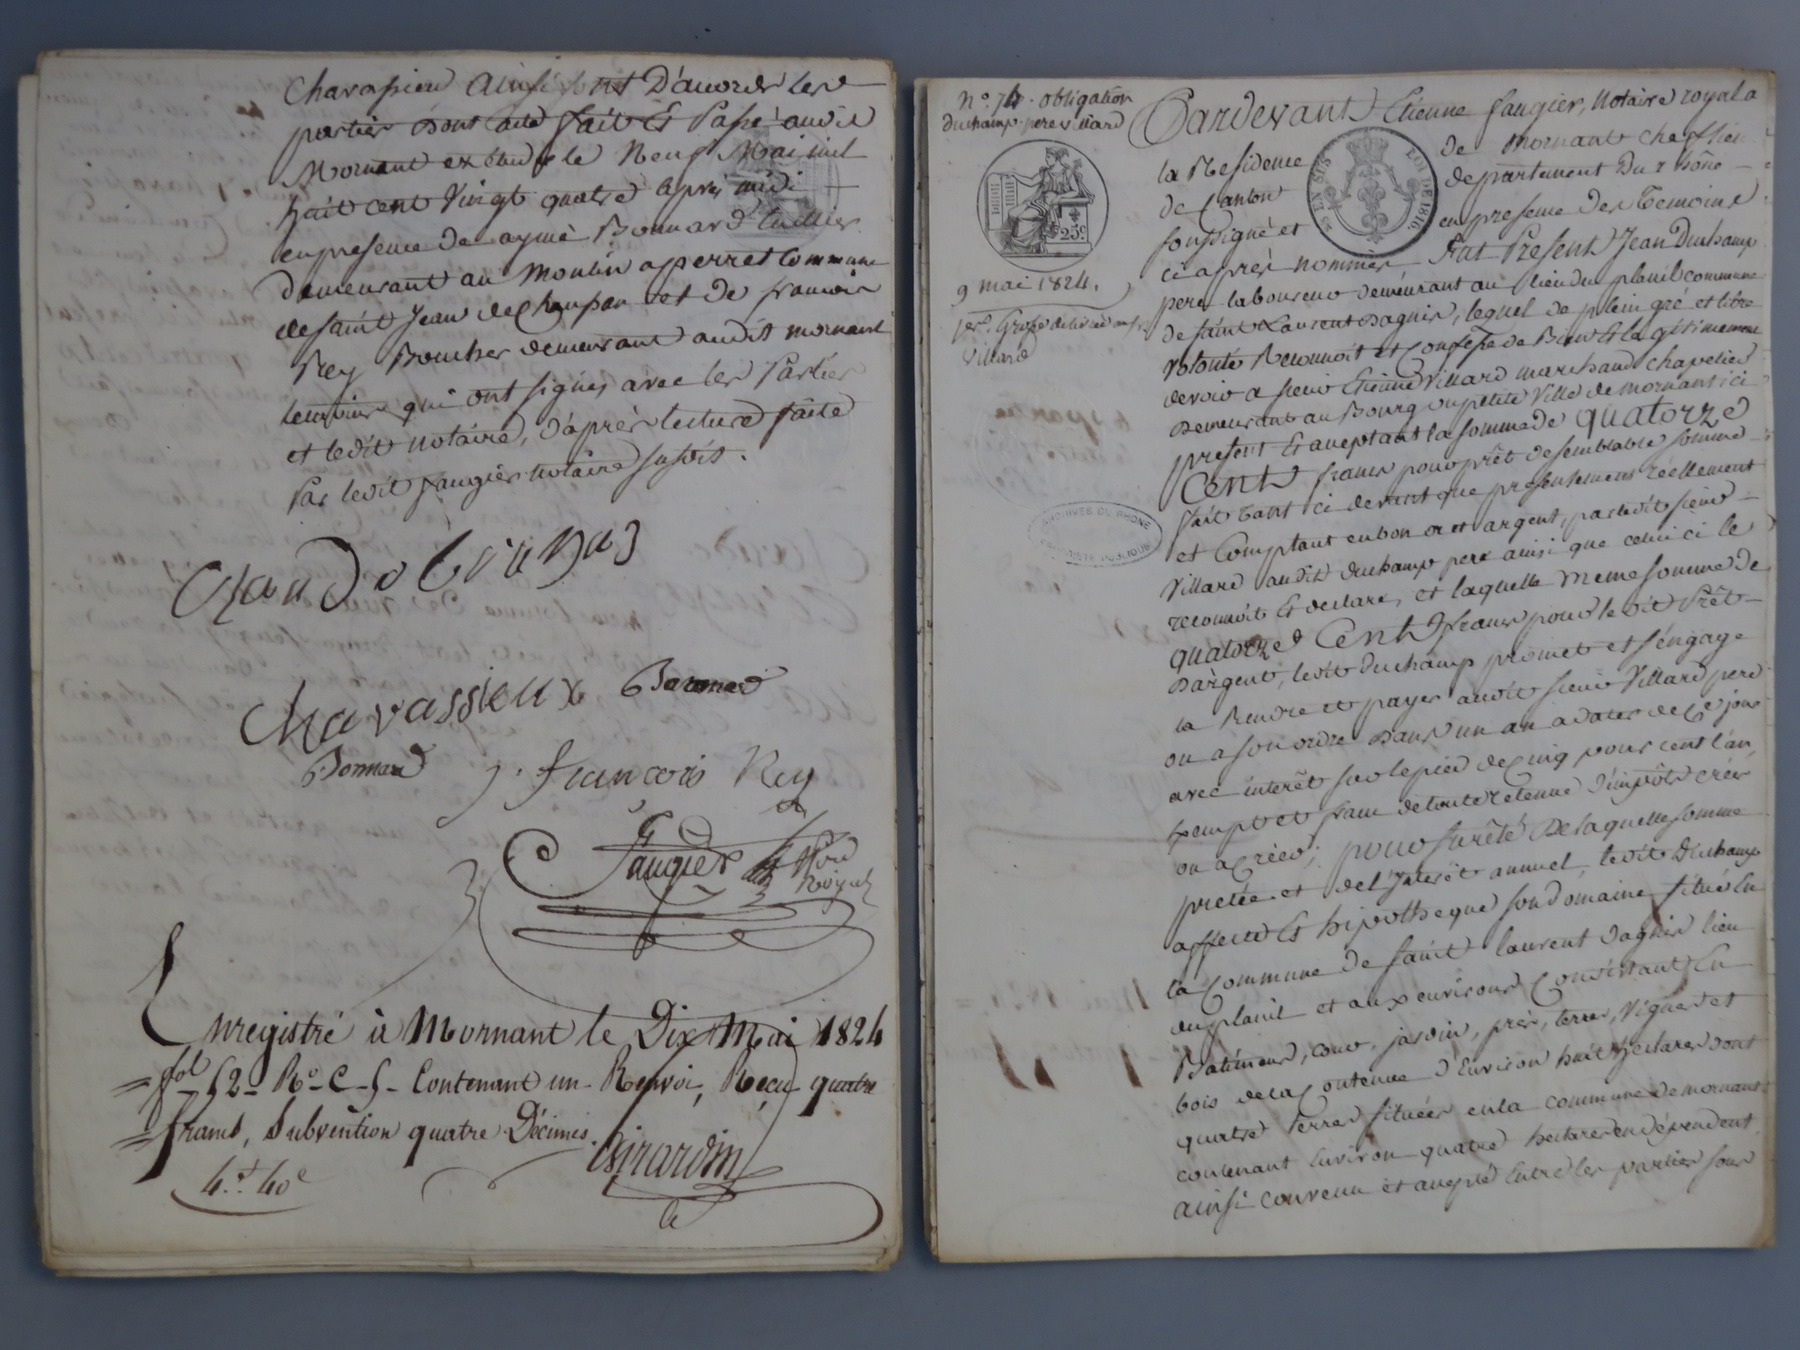 Charassieu ainsi sont D'accord les
parties Dont acte fait Et Passé audit
Mornant en Etude le Neuf Mai mil
huit cent Vingt quatre après midi
en presence de aymé Bonnard tuillier
demeurant au Moulin a perret Commune
de saint Jean de Chaussan et de francois
Rey Boucher demeurant audit mornant
temoins qui ont signés avec les Parties
et ledit notaire, d'après lecture faite
Par ledit faugier notaire susdit.
Charassieux
Bonnard
françois Rey
Faugier
Nre Royal
Enregistré à Mornant le Dix Mai 1824
fol 52 Ro C 5 Contenant un Renvoi, Reçu quatre
francs, Subvention quatre Décimes.
Girardin
4f 40c
No. 74. obligation
duchamp pere villard
25c
9 mai 1824.
Grosse delivrée au sr
Villard
LOI DE 1816.
ARCHIVES DU RHONE
PROPRIETE PUBLIQUE
Pardevant Etienne faugier, Notaire royal a
la Residence de Mornant chef lieu
de Canton departement Du Rhone
soussigné et en presence des Temoins
ci après nommés Fut Present Jean Duchamp
pere laboureur demeurant au lieu du planil commune
de saint Laurent Dagnis, lequel de plein gré et libre
volonté Reconnoit et Confesse de Bien Et légitimement
devoir a sieur Etienne Villard marchand chapelier
demeurant au Bourg ou petite Ville de mornant ici
present Et acceptant la somme de quatorze
Cent francs pour prêt de semblable somme
fait tant ci devant que presentement réellement
et Comptant en bon or et argent, par ledit sieur
Villard audit duchamp pere ainsi que celui ci le
reconnoit Et declare, et laquelle meme somme de
quatorze Cent francs pour le dit Prêt
D'argent, ledit duchamp promet et s'engage
la Rendre et payer audit sieur Villard pere
ou a son ordre Dans un an a dater de Ce jour
avec interêt sur le pied de Cinq pour cent l'an,
Exempt et franc de toute retenue d'impôts créés
ou a Créer; pour sureté De laquelle somme
pretée et de l'Interêt annuel, ledit Duchamp
affecte Et hipotheque son domaine situé En
la Commune de saint laurent dagnis lieu
du planil et aux environs Consistant En
Batimens, cour, jardin, près, terres, Vignes et
bois de la Contenue d'Environ huit hectares dont
quatre Terres situées en la commune de mornant
contenant Environ quatre hectares en dépendent
ainsi convenu et accepté Entre les parties sous